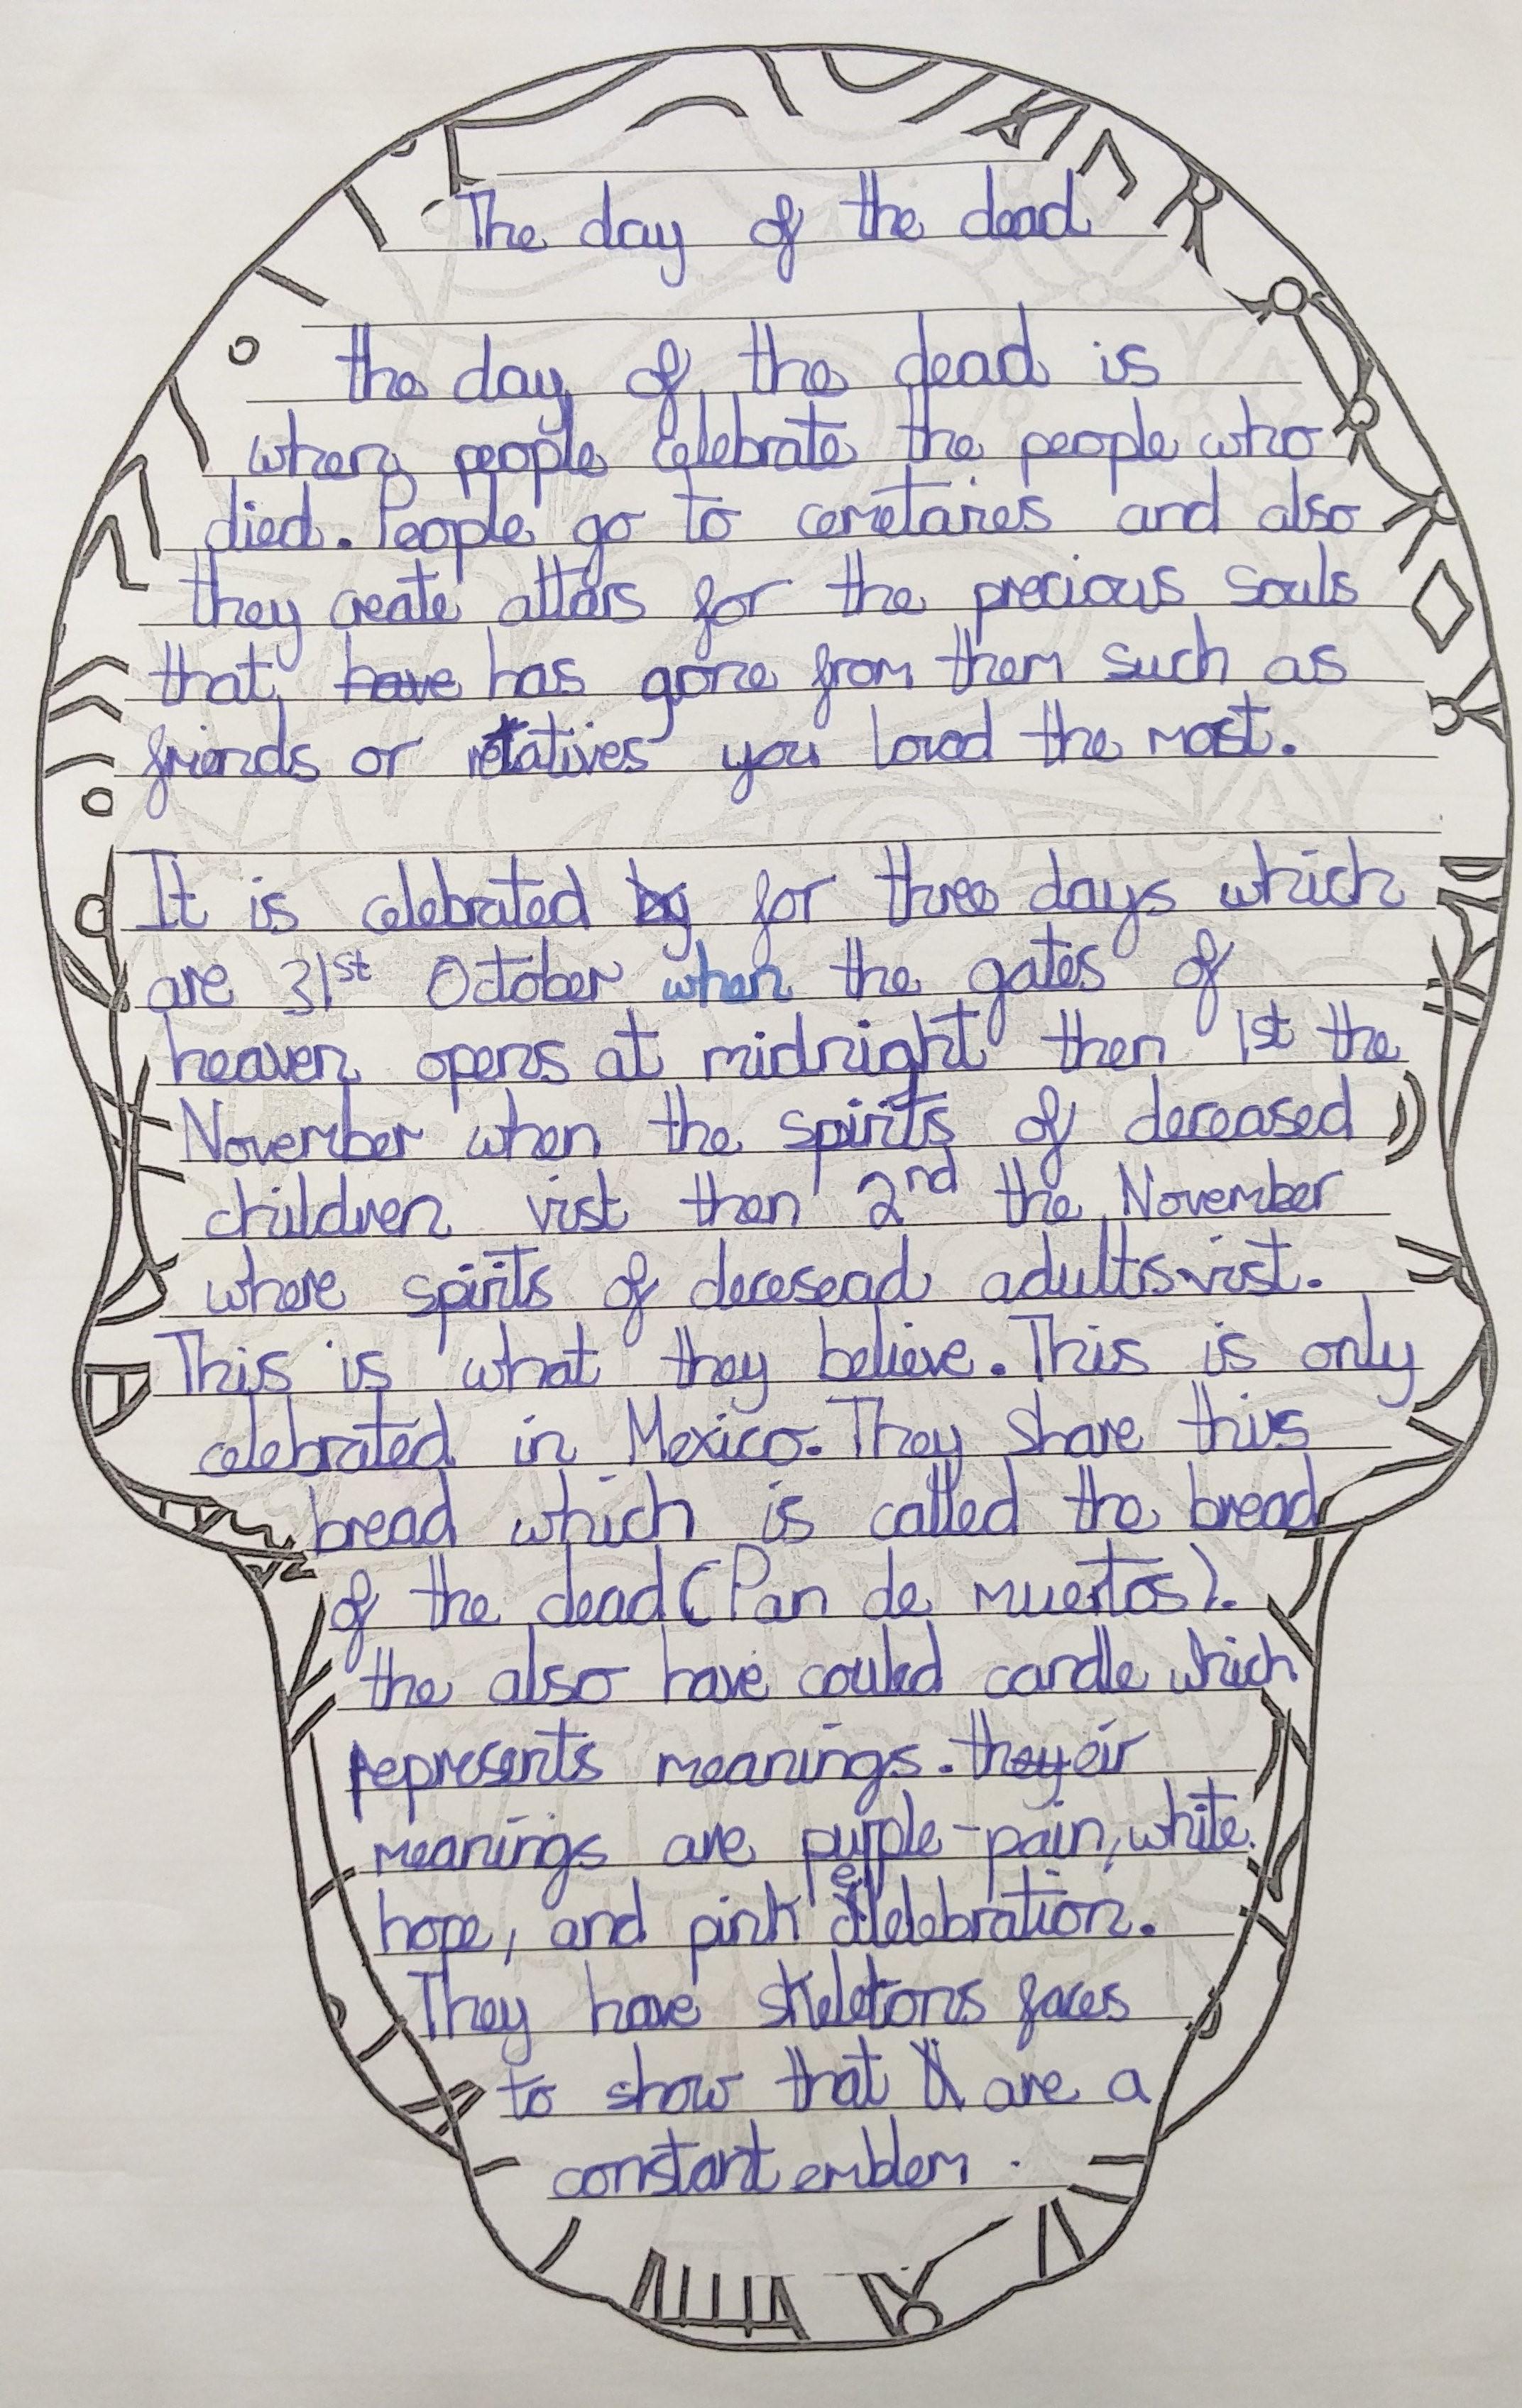 The day of the dead
the day of the dead is
when people celebrate the people who
died. People go to cemetaries and also
they create altars for the precious souls
that have has gone from them such as
friends or relatives you loved the most.
It is celebrated by for three days which
are 31st October when the gates of
heaven opens at midnight then 1st the
November when the spirits of deceased
children vist then 2nd the November
where spirits of decesead adults vist.
This is what they believe. This is only
celebrated in Mexico. They share this
bread which is called the bread
of the dead (Pan de muertos).
the also have couled candle which
represents meanings. theyeir
meanings are purple - pain, white
hope, and pink celebration.
They have skeletons faces
to show that are a
constant emblem.